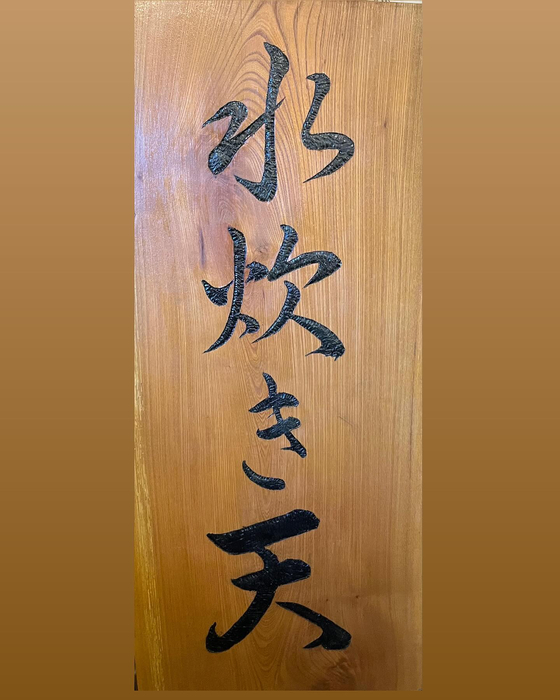 水炊き天